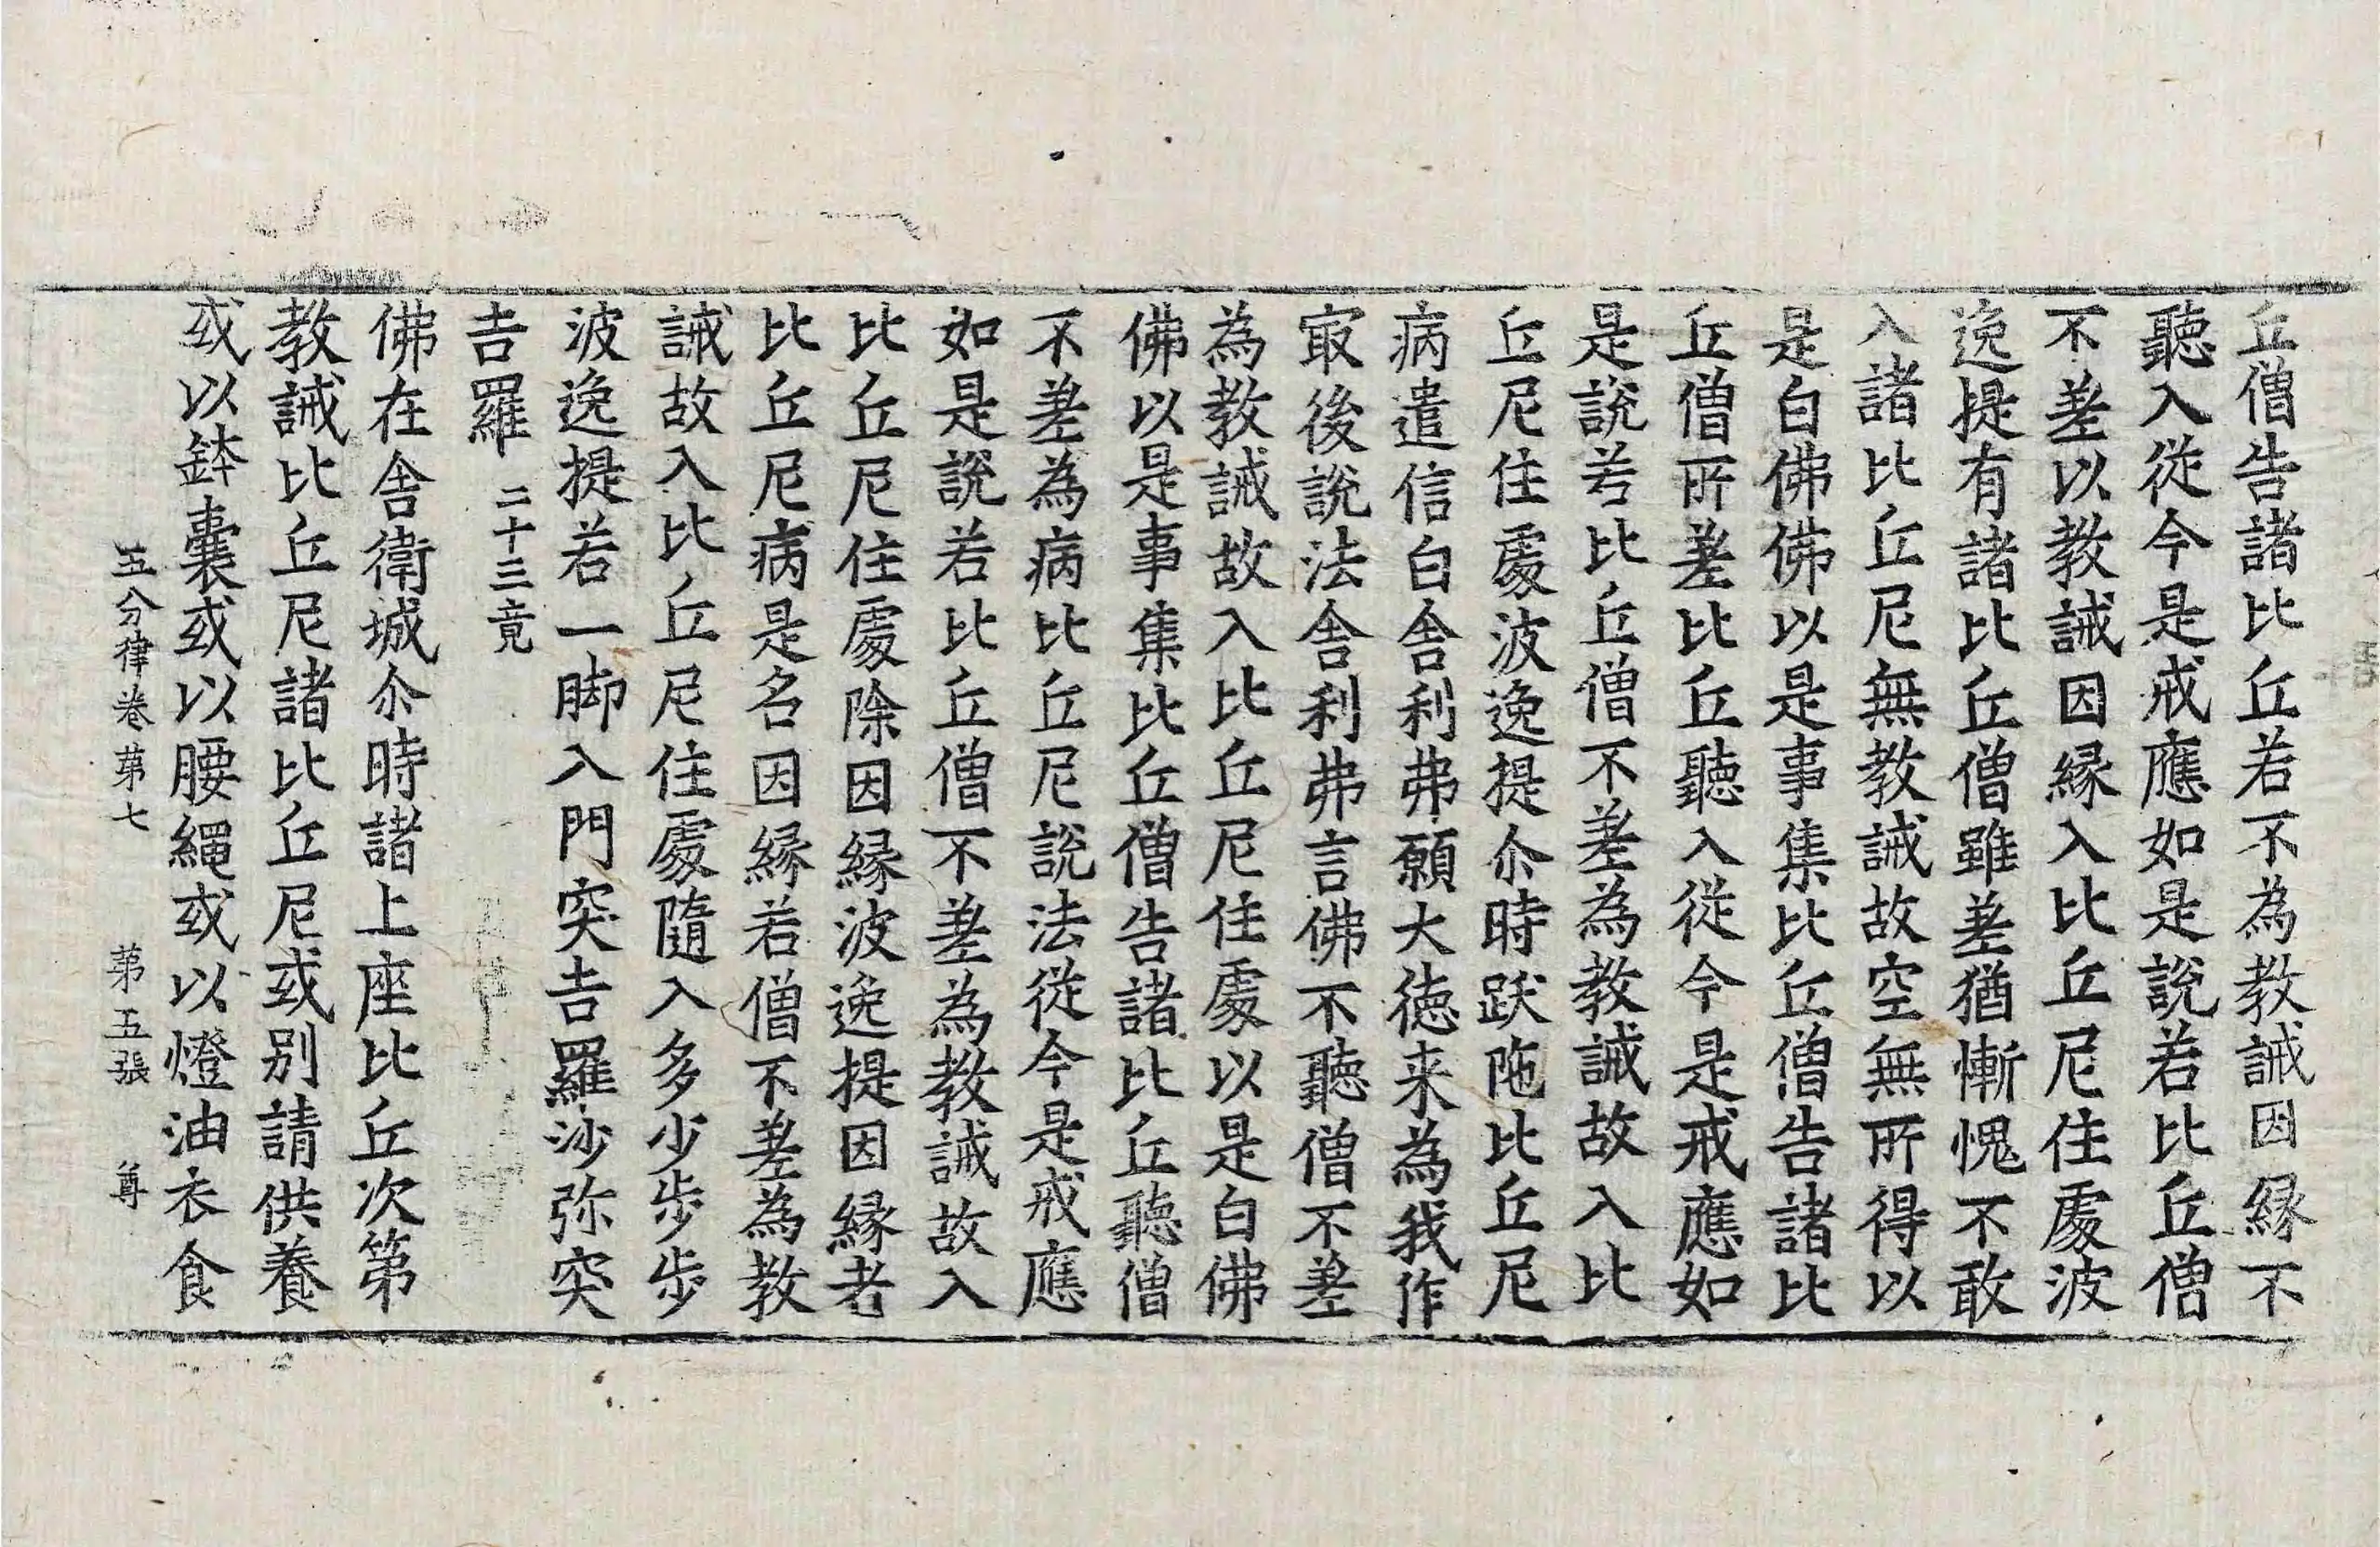 丘僧告諸比丘若不為教誡因縁不
聽入從今是戒應如是説若比丘僧
不差以教誡因縁入比丘尼住處波
逸提有諸比丘僧雖差猶慚愧不敢
入諸比丘尼無教誡故空無所得以
是白佛佛以是事集比丘僧告諸比
丘僧所差比丘聽入從今是戒應如
是説若比丘僧不差為教誡故入比
丘尼住處波逸提尒時跋陁比丘尼
病遣信白舎利弗願大徳来為我作
㝡後説法舎利弗言佛不聽僧不差
為教誡故入比丘尼住處以是白佛
佛以是事集比丘僧告諸比丘聽僧
不差為病比丘尼説法從今是戒應
如是説若比丘僧不差為教誡故入
比丘尼住處除因縁波逸提因縁者
比丘尼病是名因縁若僧不差為教
誡故入比丘尼住處隨入多少歩歩
波逸提若一脚入門突吉羅沙弥突
吉羅 二十三竟
佛在舎衛城尒時諸上座比丘次第
教誡比丘尼諸比丘尼或别請供養
或以鉢囊或以腰繩或以燈油衣食
五分律卷苐七 苐五張 尊